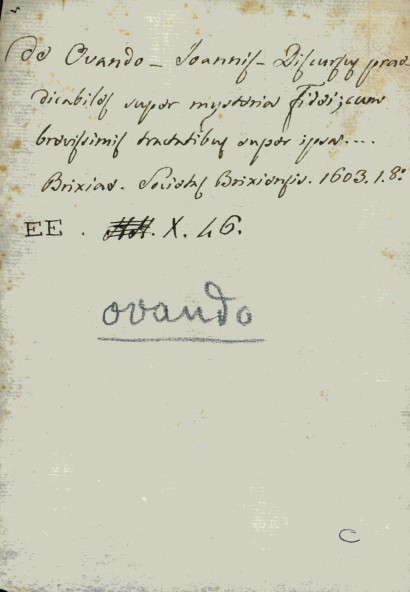 De Ovando - Joannis - Discursus præ
dicabiles super mysteria Fidei; cum
brevissimis tractatibus super ipsa...
Brixiae. Societas Brixiensis. 1603. 1. 8º
EE . . X. 46.
ovando
C